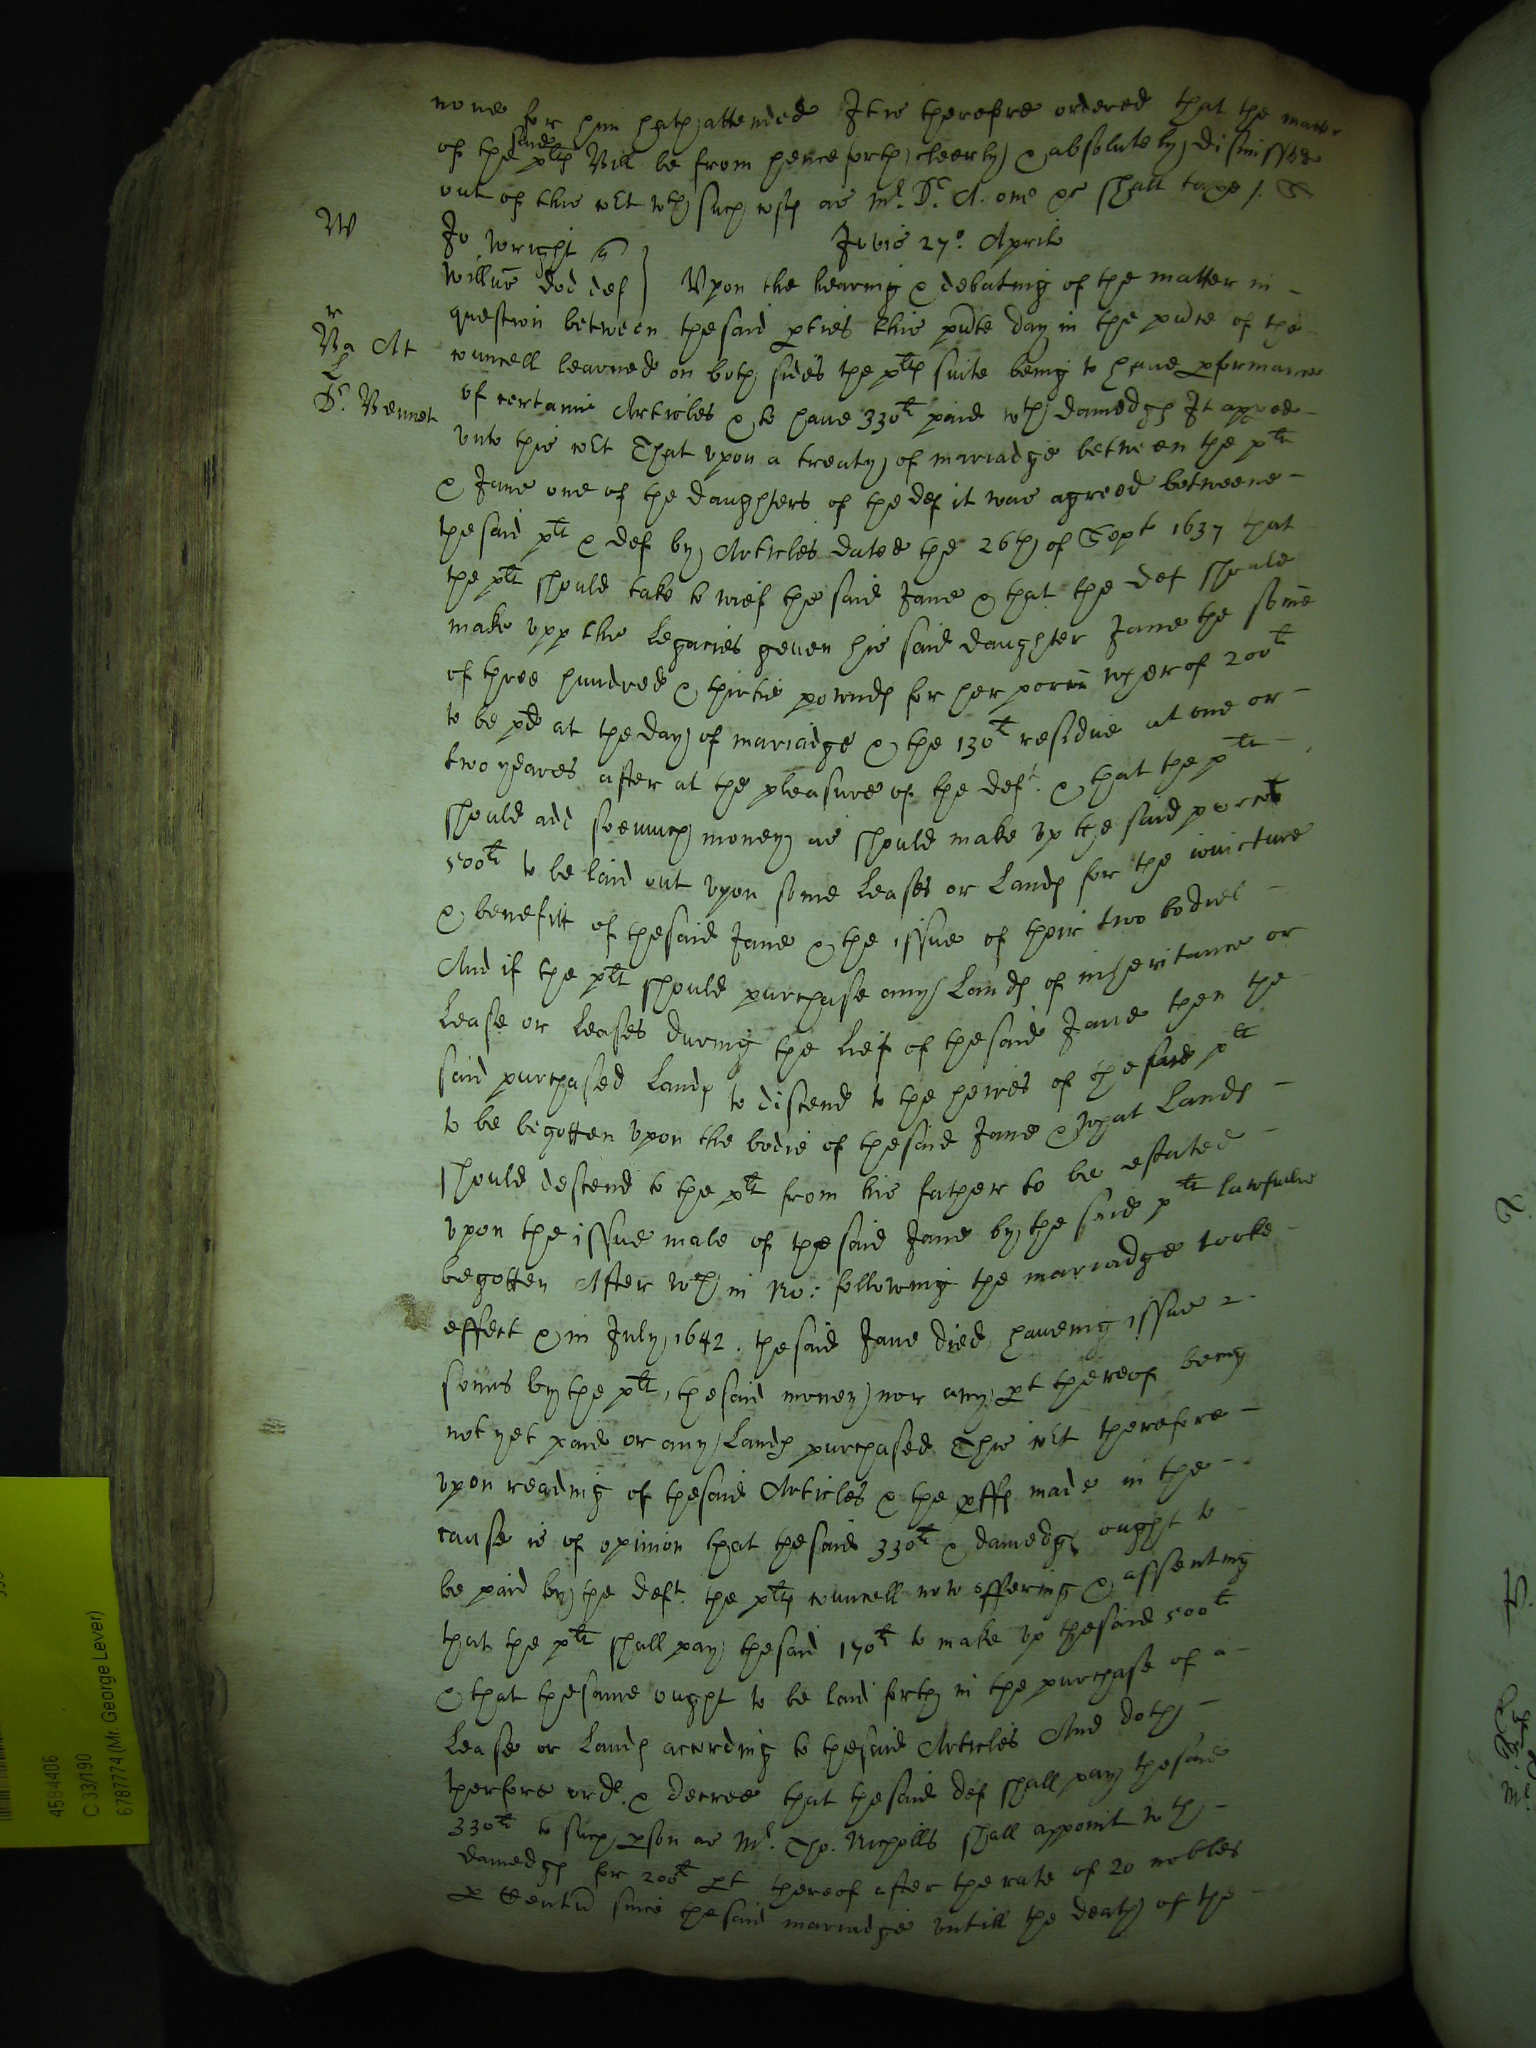 none for him hath attended It is therefore ordered that the matter
of the said plts Bill be from henceforth cleerly & absolutely dismissed
out of this Crt wth such costs as Mr. Dr. A. one &c shall taxe
W
Jo Wright q
Jovis 27o. Aprilis
Willm Dod def
Upon the hearing & debating of the matter in -
question between the said pties this pnte day in the pnce of the
councell learned on both sides the plts suite being to have pformance
of certaine Articles & to have 330li paid wth damedgs It apped -
unto this Crt That upon a treaty of mariadge between the plt
& Jane one of the daughters of the def it was agreed betweene -
the said plt & def by Articles dated the 26th of Sept 1637 that
the plt should take to wief the said Jane & that the def should
make upp the Legacies geven his said daughter Jane the some
of three hundred & thirtie pownds for her porcon wherof 200li
to be pd at the day of mariadge & the 130li residue at one or -
two yeares after at the pleasure of the deft. & that the plt -
should add soemuch money as should make up the said porcon
500li to be laid out upon some Leases or Lands for the ioincture
& benefitt of the said Jane & the issue of their two bodies -
And if the plt should purchase any Lands of inheritance or
Lease or Leases during the Lief of the said Jane then the
said purchased Lands to discend to the heires of the said plt
to be begotten upon the bodie of the said Jane & what Lands -
should descend to the plt from his father to be estated -
upon the issue male of the said Jane by the said plt lawfullie
begotten After wch in No: following the mariadge tooke -
effect & in July 1642. the said Jane died haveing issue 2
sonns by the plt, the said money nor any pt thereof being
not yet paid or any Lands purchased This Crt therefore -
upon reading of the said Articles & the pffs made in the -
cause is of opinion that the said 330li & damedgs ought to -
be paid by the deft. the plts councell now offering & assenting
that the plt shall pay the said 170li to make up the said 500li
& that the same ought to be laid forth in the purchase of a -
Lease or Lands according to the said Articles And doth -
therfore ordr. & decree that the said def shall pay the said
330li to such pson as Mr. Tho. Nicholls shall appoint wth -
damedgs for 200li pt thereof after the rate of 20 nobles
p Centu since the said mariadge untill the death of the -
r
Ba At
L
Dr. Bennet
4584406
C 33/190
6787774 (Mr. George Lever)